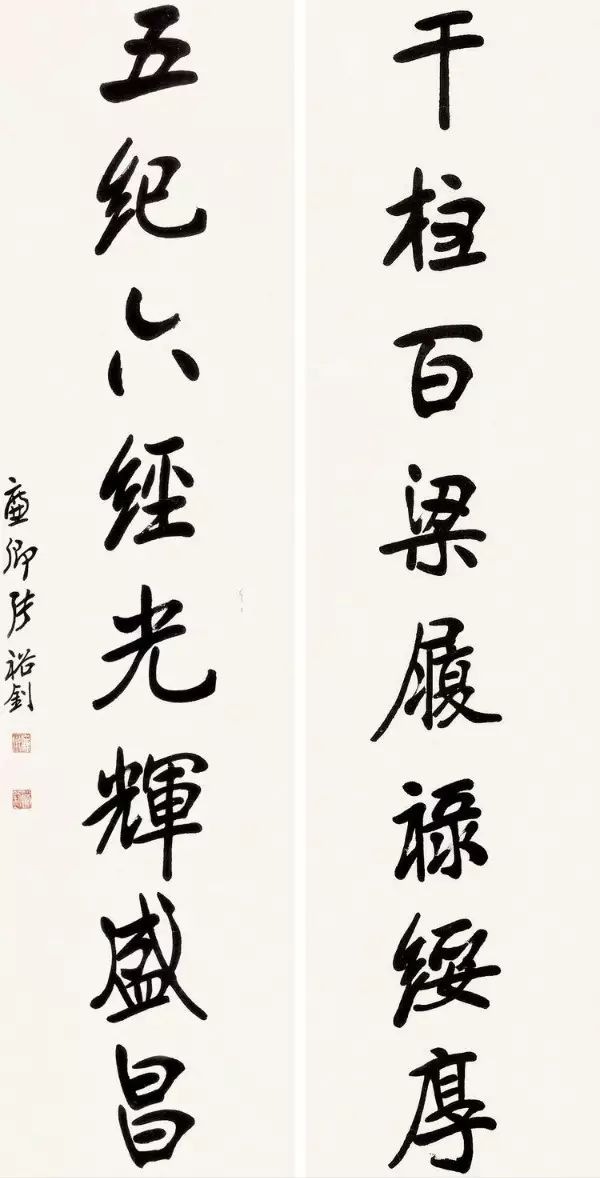 千柱百梁履祿綏厚
五紀六經光輝盛昌
廉卿張裕釗